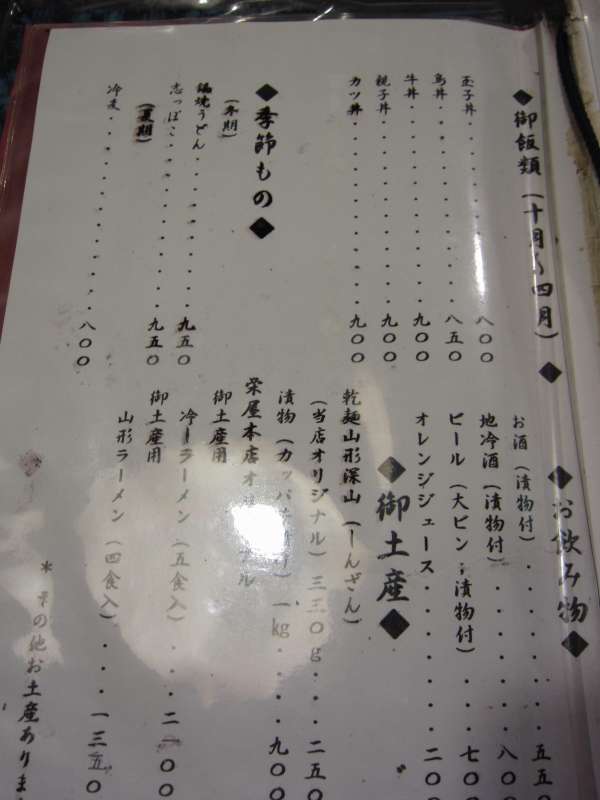 ◆御飯類（十月〜四月）◆
玉子丼・・・・・・・・・八〇〇
鳥丼・・・・・・・・・八五〇
牛丼・・・・・・・・・九〇〇
親子丼・・・・・・・・・九〇〇
カツ丼・・・・・・・・・九〇〇
◆季節もの◆
（冬期）
鍋焼うどん・・・・・・・・・九五〇
志っぽこ・・・・・・・・・九五〇
（夏期）
冷麦・・・・・・・・・八〇〇
◆お飲み物◆
お酒（漬物付）・・・・・・五五〇
地冷酒（漬物付）・・・・・・八〇〇
ビール（大ビン；漬物付）・・・七〇
オレンジジュース・・・・・・二〇
◆御土産◆
乾麺山形深山（しんざん）
（当店オリジナル）三三〇g・・・二五〇
漬物（カッパ）一kg・・・・九〇〇
栄屋本店オリジナル
御土産用
冷しラーメン（五食入）・・・・二一〇〇
御土産用
山形ラーメン（四食入）・・・・一三五〇
＊その他お土産ありま